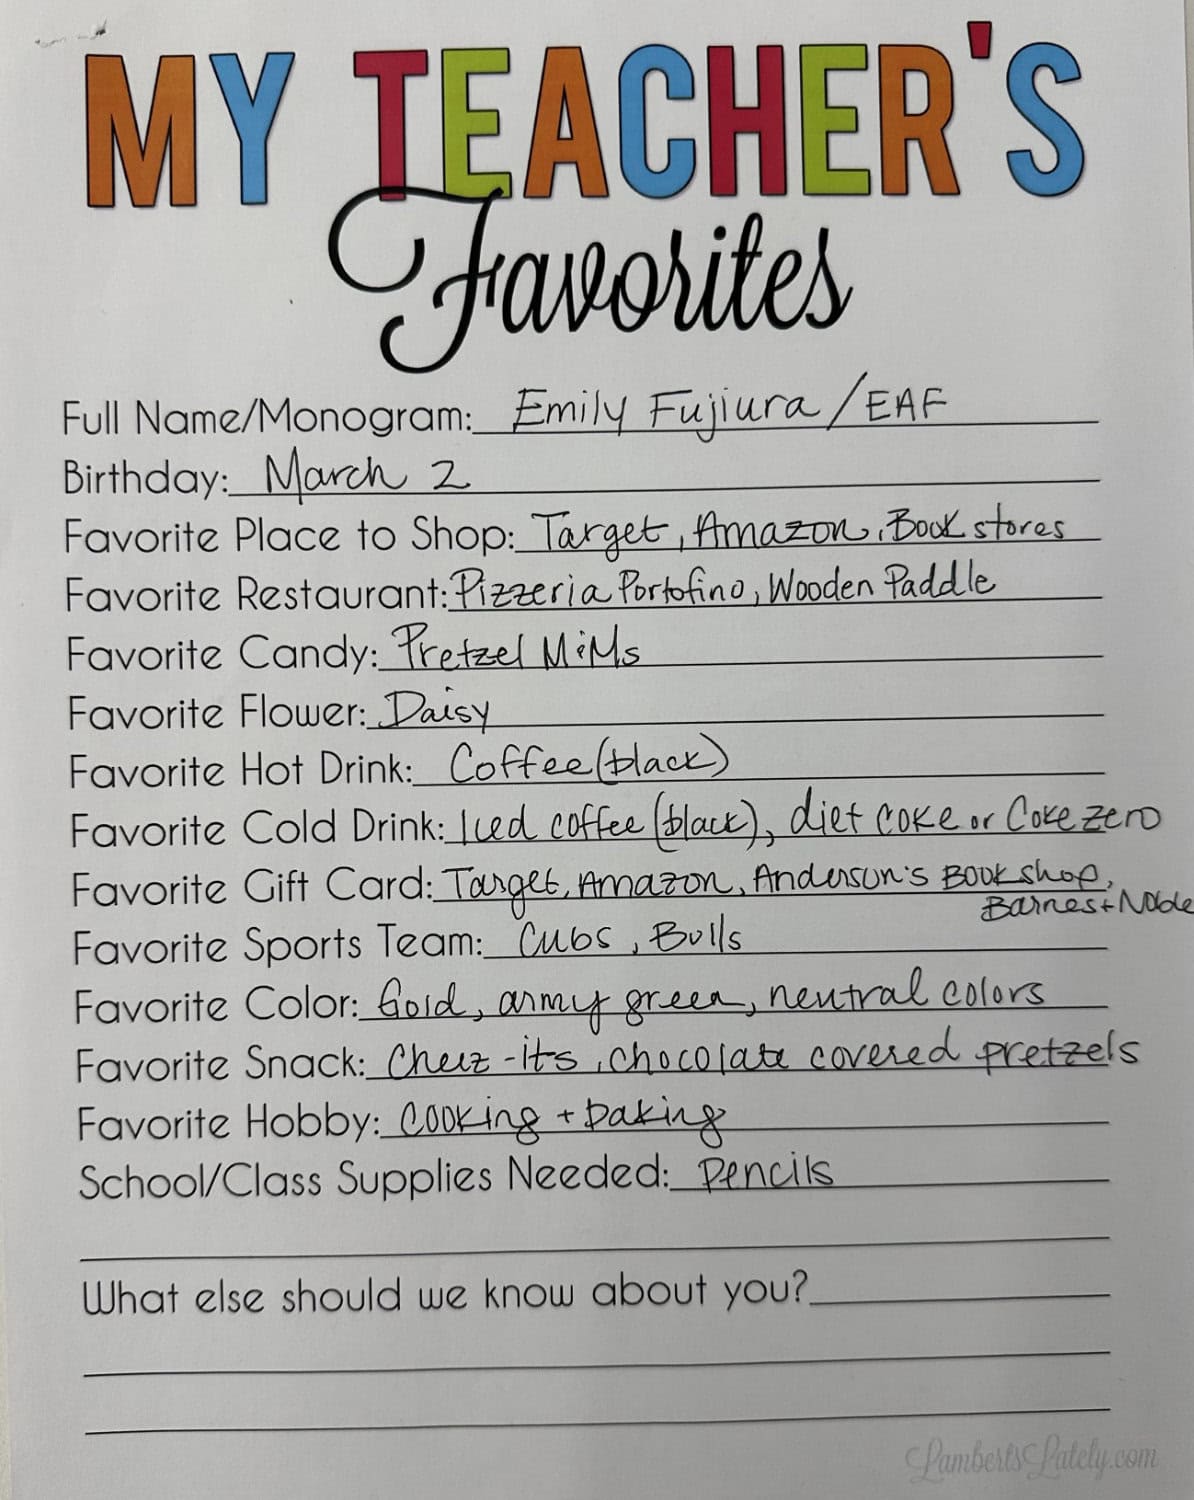 MY TEACHER'S
Favorites
Full Name/Monogram: Emily Fujiura/EAF
Birthday: March 2
Favorite Place to Shop: Target, Amazon, Book stores
Favorite Restaurant: Pizzeria Portofino, Wooden Paddle
Favorite Candy: Pretzel M&Ms
Favorite Flower: Daisy
Favorite Hot Drink: Coffee (black)
Favorite Cold Drink: Iced coffee (black), diet coke or Coke zero
Favorite Gift Card: Target, Amazon, Anderson's Bookshop,
Barnes + Noble
Favorite Sports Team: Cubs, Bulls
Favorite Color: Gold, army green, neutral colors
Favorite Snack: Cheez-its, chocolate covered pretzels
Favorite Hobby: cooking + baking
School/Class Supplies Needed: pencils
What else should we know about you?
LambertsLately.com